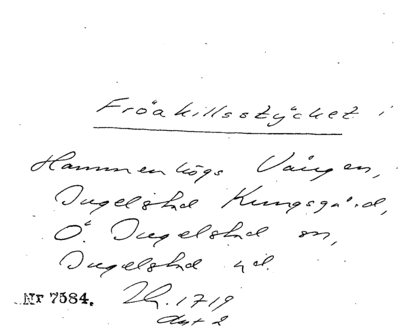 Fröakillsstycket i
Hammenhögs Vången,
Ingelstad Kungsgård,
Ö. Ingelstad sn,
Ingelstad hd.
Nr 7584. Lh. 1719
Akt 2